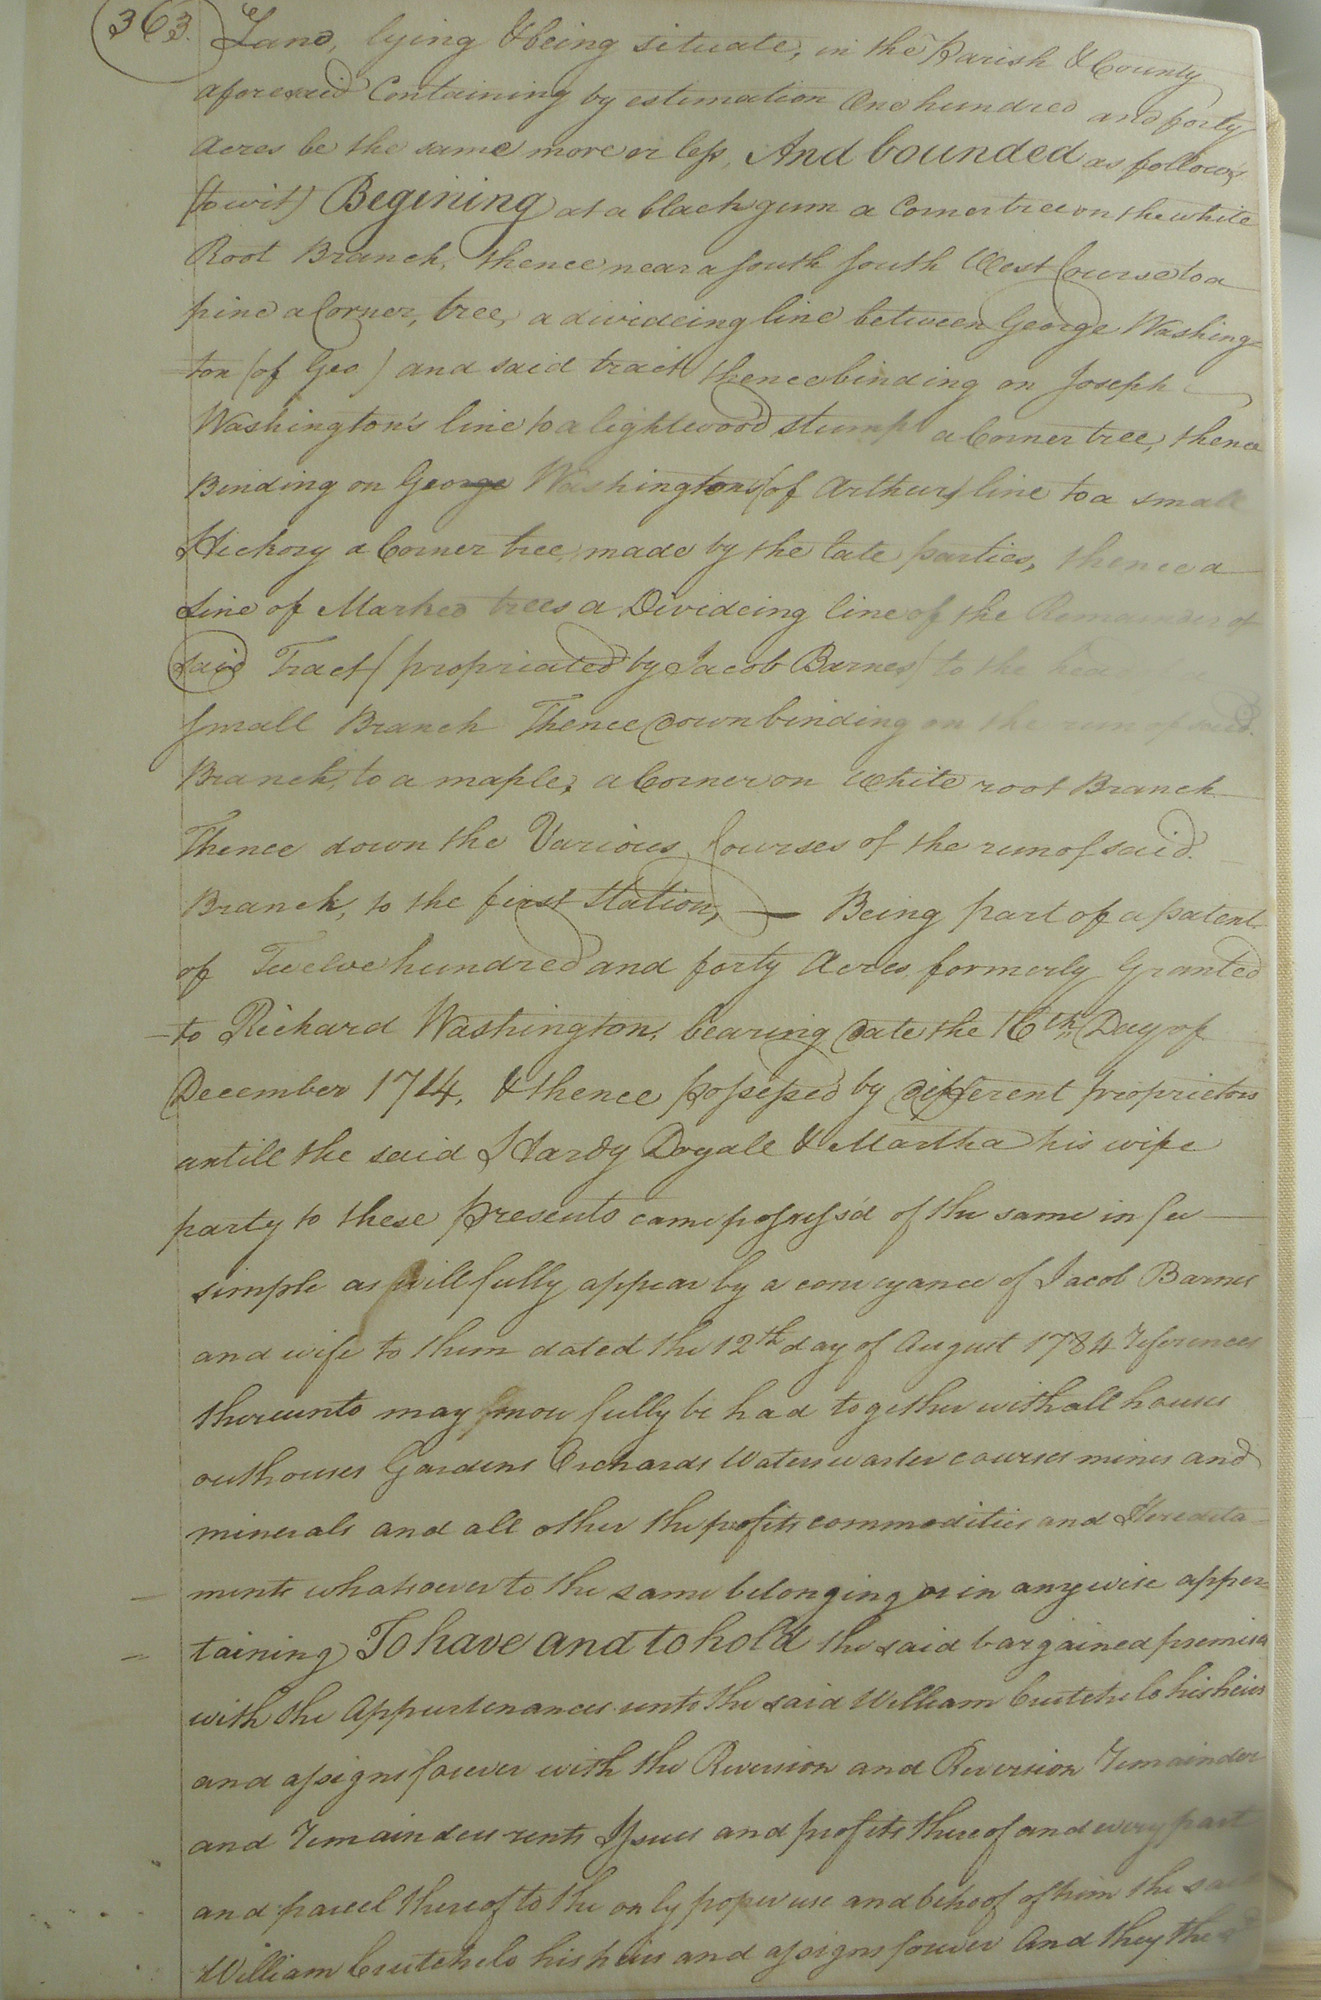 363.
Land, lying & being situate, in the Parish & County
aforesaid Containing by estimation One hundred and forty
Acres be the same more or less, And bounded as follows
(to wit) Begining at a black gum a Corner tree on the white
Root Branch, thence near a South South West Course to a
pine a Corner, tree, a divideing line between George Washing-
ton (of Geo) and said tract thence binding on Joseph
Washington's line to a lightwood stump a Corner tree, thence
Binding on George Washingtons (of Arthur) line to a small
Hickory a Corner tree, made by the late parties, thence a
Line of Marked trees a Divideing line of the Remainder of
said Tract (propriated by Jacob Barnes) to the
Small Branch Thence down binding on the run of said
Branch, to a maple, a Corner on White root Branch
Thence down the Various Courses of the run of said
Branch, to the first Station, — Being part of a patent
of Twelve hundred and forty Acres, formerly Granted
to Richard Washington, bearing date the 16th Day of
December 1714, & thence possessed by different proprietors
untill the said Hardy Doyale & Martha his wife
party to these presents came possess'd of the same in fee
simple as will fully appear by a conveyance of Jacob Barnes
and wife to them dated the 12th day of August 1784 references
thereunto may more fully be had together with all houses
outhouses Gardens Orchards Waters warter courses mines and
minerals and all other the profits commodities and Heredita-
ments whatsoever to the same belonging or in anywise apper-
taining To have and to hold the said bargained premises
with the Appurtenances unto the said William Crutchelo his heirs
and assigns forever with the Reversion and Reversion Remainder
and Remainders rents Issues and profits thereof and every part
and parcel thereof to the only proper use and behoof of him the said
William Crutchelo his heirs and assigns forever And they the